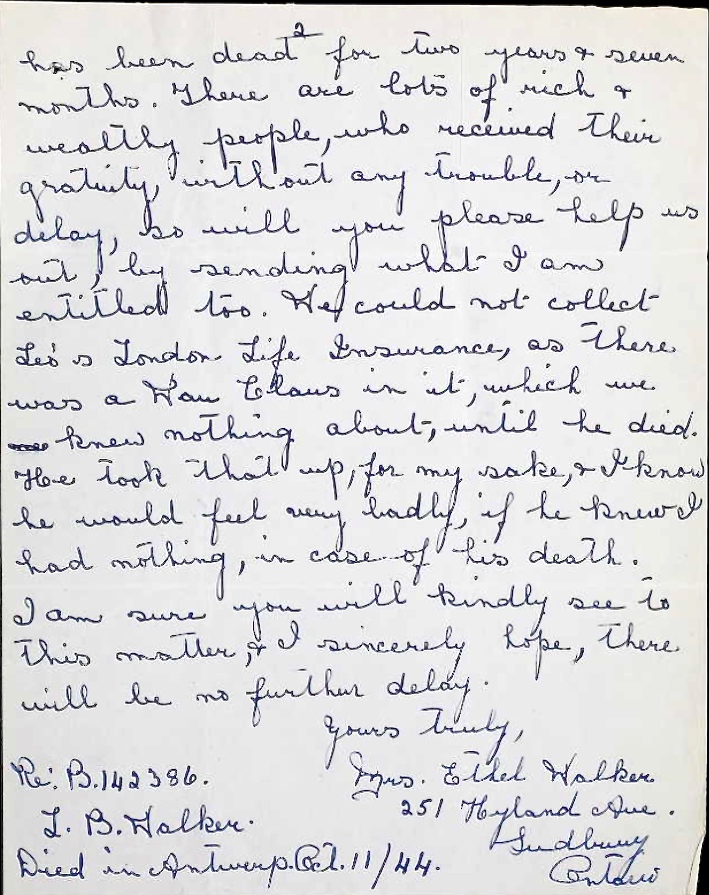 2
has been dead for two years & seven
months. There are lots of rich &
wealthy people, who received their
gratuity, without any trouble, or
delay, so will you please help us
out, by sending what I am
entitled too. We could not collect
Leo's London Life Insurance, as there
was a War Claus in it, which we
knew nothing about, until he died.
He took that up, for my sake, & I know
he would feel very badly, if he knew I
had nothing, in case of his death.
I am sure you will kindly see to
this matter, & I sincerely hope, there
will be no further delay.
Yours truly,
Re: B.142386. Mrs. Ethel Walker
L. B. Walker. 251 Hyland Ave.
Sudbury
Died in Antwerp. Oct. 11/44. Ontario